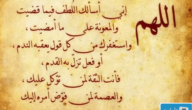 اللهم
إني أسألك اللطف فيما قضيت
والمعونة على ما أمضيت،
واستغفرك من كل قول يعقبه الندم،
أو فعل تزل به القدم،
فأنت الثقة لمن توكل عليك،
والعصمة لمن فوّض أمره إليك